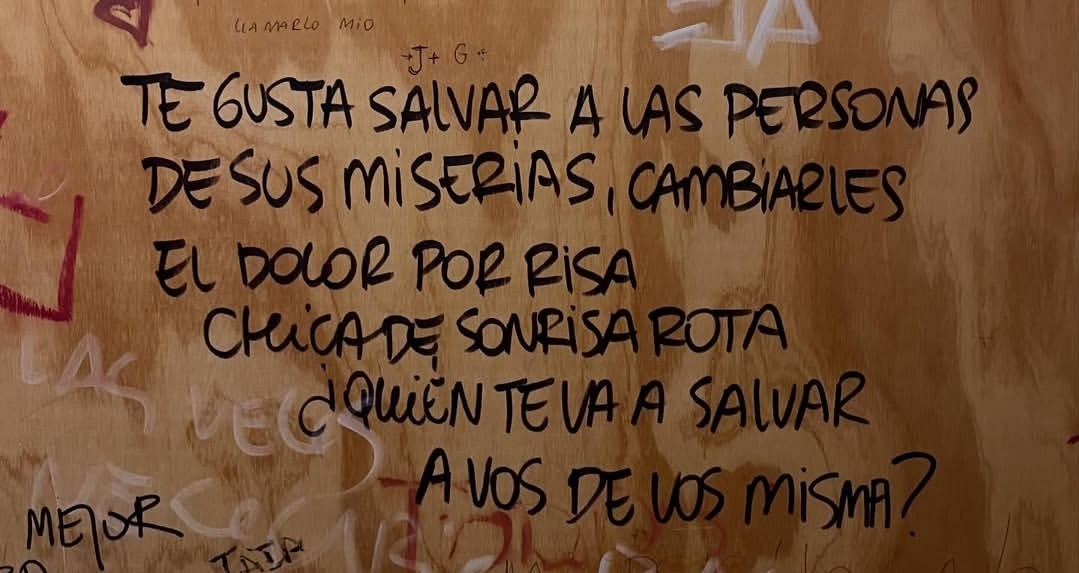 LLAMARLO MIO
J+ G
TE GUSTA SALVAR A LAS PERSONAS
DE SUS MISERIAS, CAMBIARLES
EL DOLOR POR RISA
CHICA DE SONRISA ROTA
¿QUIÉN TE VA A SALVAR
A VOS DE VOS MISMA?
LAS
VECES
MEJOR